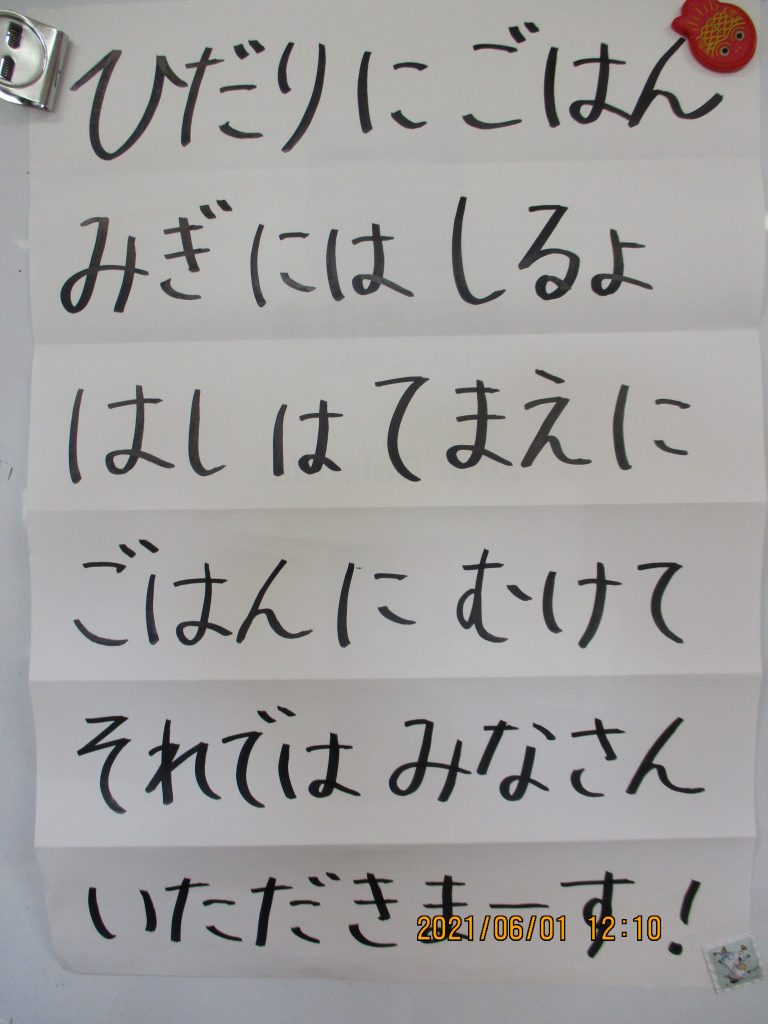 ひだりに ごはん
みぎには しるよ
はし は てまえに
ごはんに むけて
それでは みなさん
いただきまーす!
2021/06/01 12:10